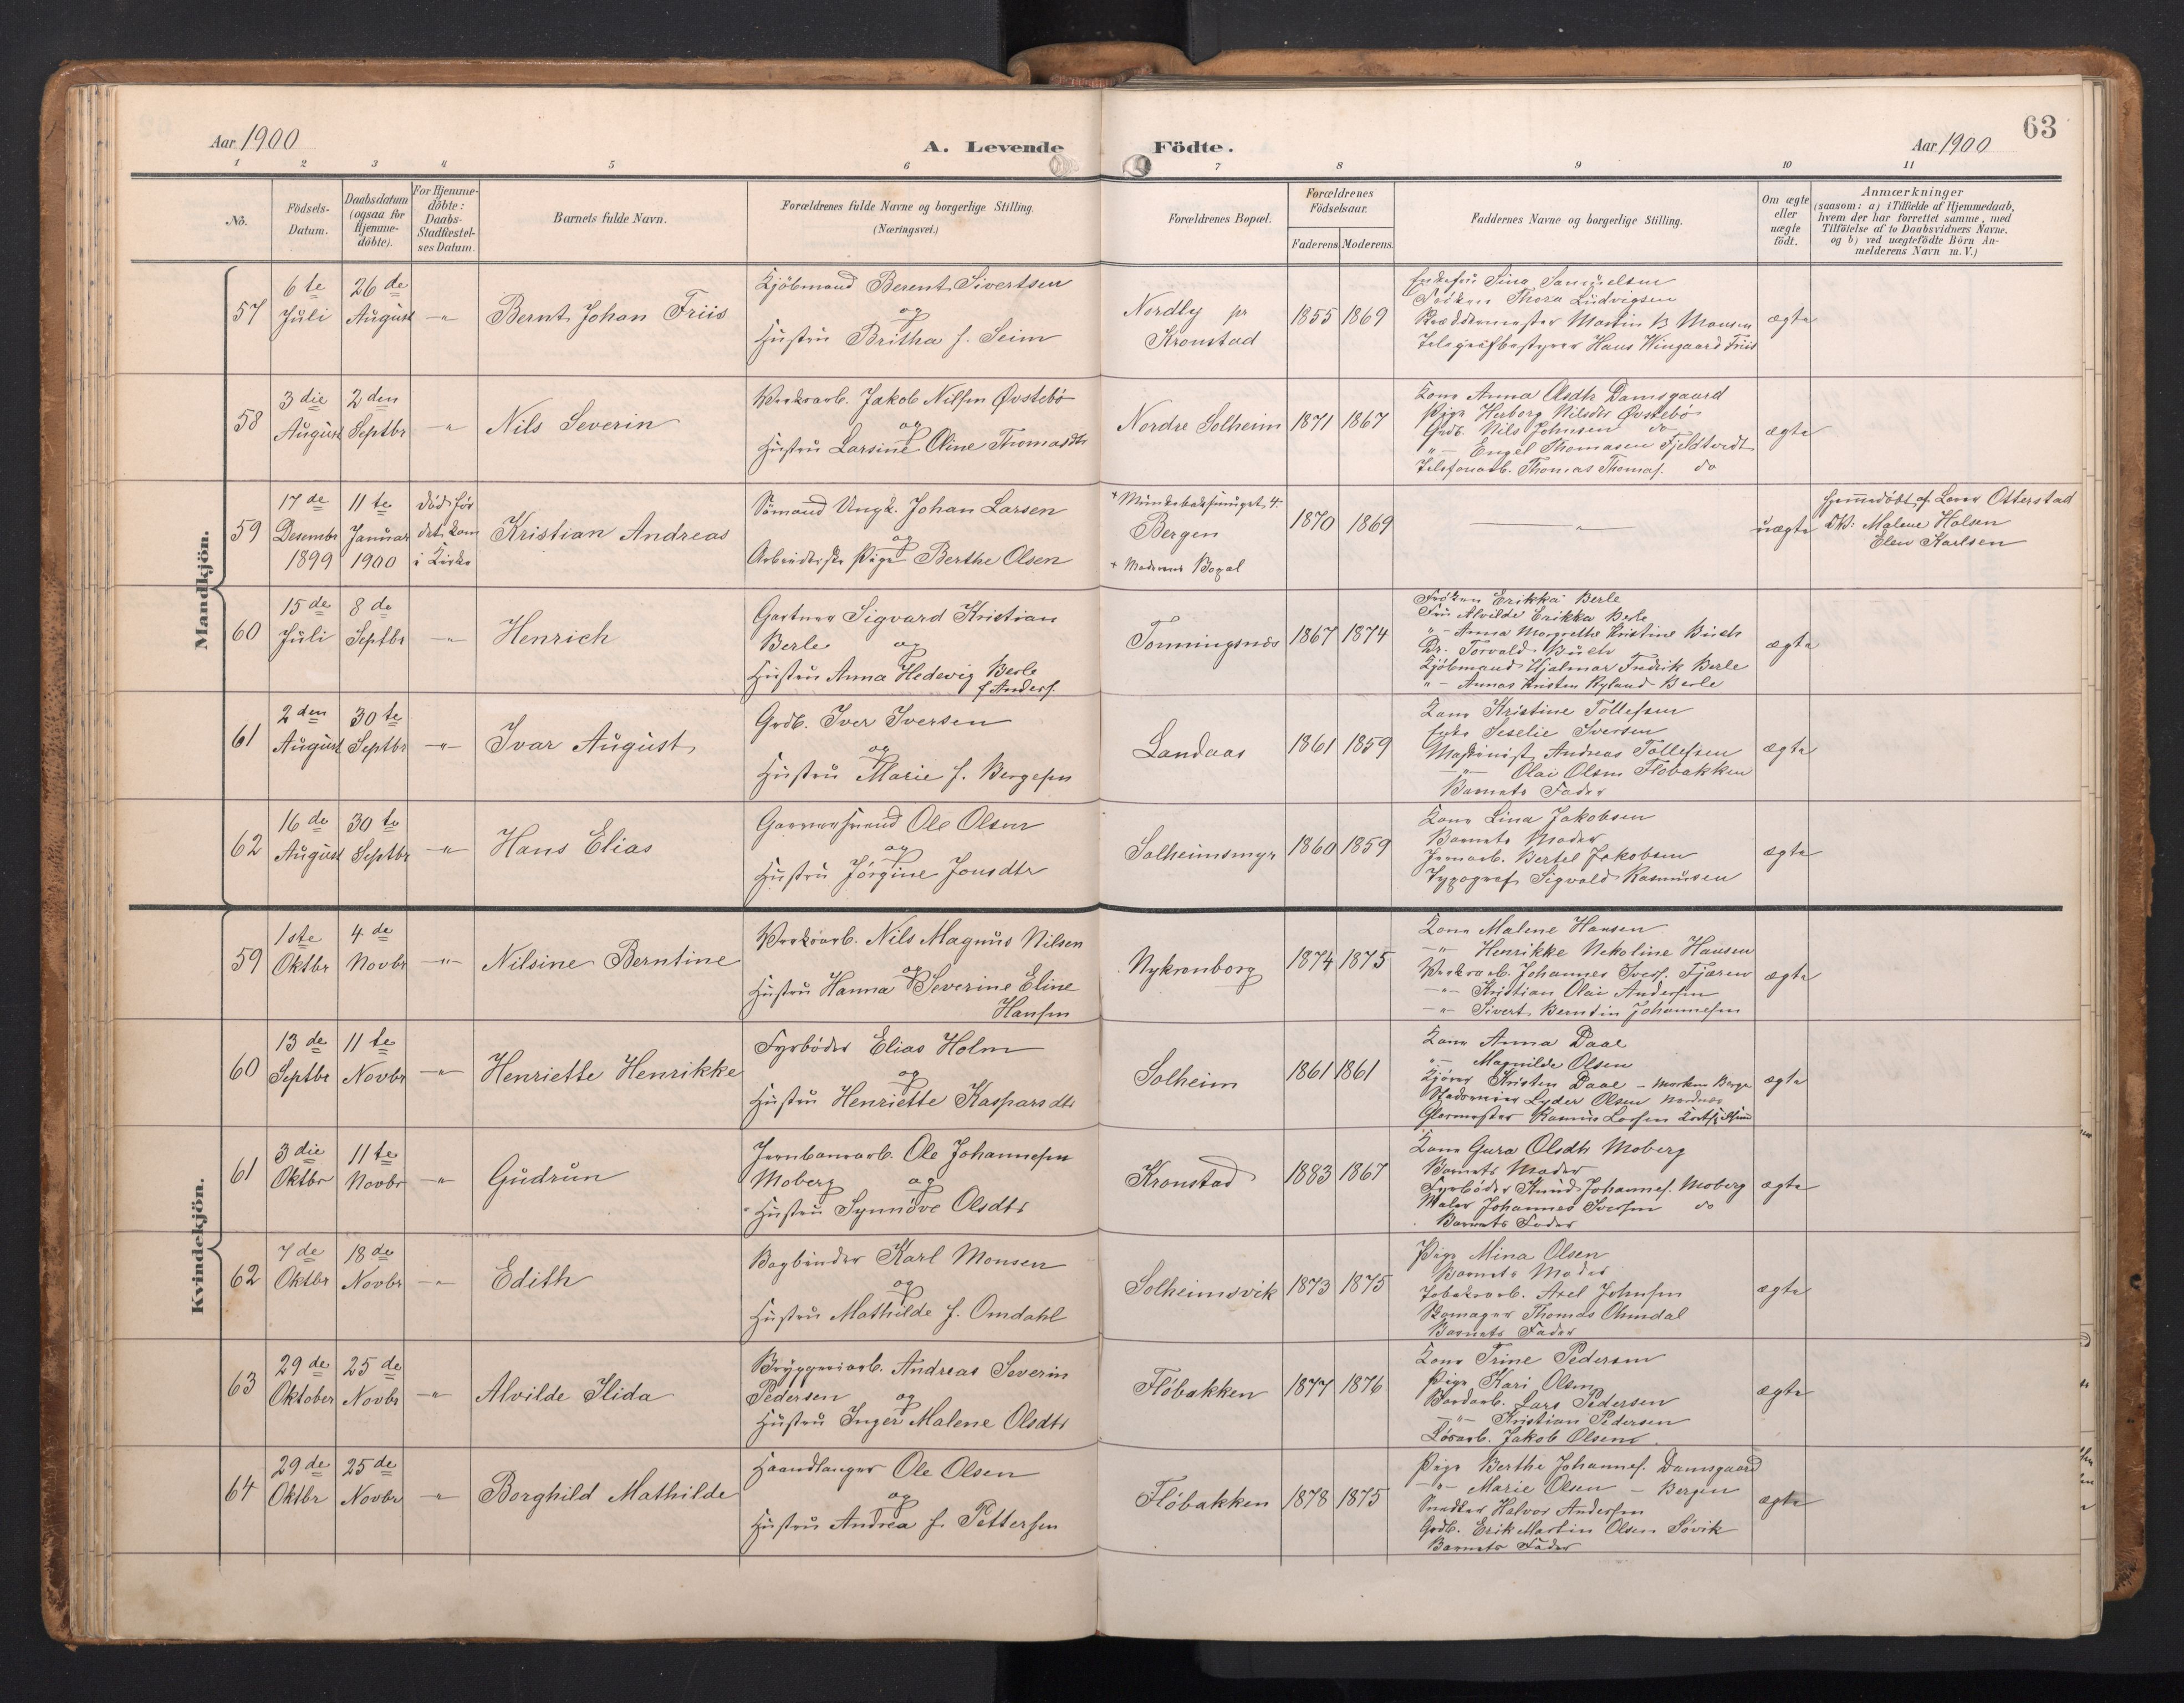 63
Aar 1900
A. Levende
Födte.
Aar 1900
1 2 3 4 5 6 7 8 9 10 11
No.
Födsels-
Datum.
Daabsdatum
(ogsaa for
Hjemme-
döbte).
For Hjemme-
döbte:
Daabs-
Stadfestel-
ses Datum.
Barnets fulde Navn.
Forældrenes fulde Navne og borgerlige Stilling.
(Næringsvei.)
Forældrenes Bopæl.
Forældrenes
Födselsaar.
Faderens Moderens
Faddernes Navne og borgerlige Stilling.
Om ægte
eller
uægte
födt.
Anmærkninger
(saasom: a) i Tilfælde af Hjemmedaab,
hvem der har forrettet samme, med
Tilföielse af to Daabsvidners Navne.
og b) ved uægtefödte Börn An-
melderens Navn m. V.)
Mandkjön.
57
6te
Juli
26de
August
-"-
Bernt Johan Friis
Kjöbmand Berent Sivertsen
og
Hustru Britha f. Seim
Nordly pr
Kronstad
1855 1869
Enkefru Sina Samuelsen
Fröken Thora Ludvigsen
Martin B Monsen
Telegrafbestyrer Hans Wingaard Friis
ægte
58
3die
August
2den
Septbr
-"-
Nils Severin
Værksarb. Jakob Nilsen Øvstebö
og
Hustru Larsine Oline Thomasdtr
Nordre Solheim
1871 1867
Kone Anna Olsdtr Damsgaard
Pige Herborg Nilsdtr Øvstebö
Grdb. Nils Johnsen do
-"- Engel Thomasen Fjeldtvedt
Telefonarb. Thomas Thomas. do
ægte
59
17de
Desembr
1899
11te
Januar
1900
död för
det kom
i Kirke
Kristian Andreas
Sömand Ungk. Johan Larsen
og
Arbeiderske Pige Berthe Olsen
+ Munkebæksmuget 4-
Bergen
+ Moderens Bopæl
1870 1869
-"-
uægte
Hjemmedöbt af Lærer Otterstad
DV: Malene Halsen
Elen Karlsen
60
15de
Juli
8de
Septbr
-"-
Henrich
Gartner Sigvard Kristian
Berle og
Hustru Anna Hedevig Berle
f. Anders.
Tonningsnæs
1867 1874
Fröken Erikka Berle
Fru Alvilde Erikka Berle
"- Anna Margrethe Kristine Buch
Dr. Torvald Buch
Kjöbmand Hjalmar Fredrik Berle
"- Annas Kristen Ryland Berle
ægte
61
2den
August
30te
Septbr
-"-
Ivar August
Grdb. Iver Iversen
og
Hustru Marie f. Bergesen
Landaas
1861 1859
Kone Kristine Tollefsen
Enke Seselie Iversen
Maskinist Andreas Tollefsen
-"- Olai Olsen Flöbakken
Barnets Fader
ægte
62
16de
August
30te
Septbr
-"-
Hans Elias
Garversvend Ole Olsen
og
Hustru Jörgine Jonsdtr
Solheimsmyr
1860 1859
Kone Lina Jakobsen
Barnets Moder
Jernarb. Bertel Jakobsen
Typograf Sigvald Rasmussen
ægte
Kvindekjön.
59
1ste
Oktbr
4de
Novbr
-"-
Nilsine Berntine
Værksarb. Nils Magnus Nilsen
og
Hustru Hanna Severine Eline
Hansen
Nykronborg
1874 1875
Kone Malene Hansen
-"- Henrikke Nekoline Hansen
Værksarb. Johannes Ivers. Fjæren
-"- Kristian Olai Andersen
-"- Sivert Berntin Johannesen
ægte
60
13de
Septbr
11te
Novbr
-"-
Henriette Henrikke
Fyrböder Elias Holm
og
Hustru Henriette Kaspersdtr
Solheim
1861 1861
Kone Anna Daae
"- Magnilde Olsen
Kjörer Kristen Daae
Lyder Olsen Nordnæs
Glarmester Rasmus Larsen
ægte
61
3die
Oktbr
11te
Novbr
-"-
Gudrun
Jernbanearb. Ole Johannesen
Moberg og
Hustru Synnöve Olsdtr
Kronstad
1883 1867
Kone Gura Olsdtr Moberg
Barnets Moder
Fyrböder Knud Johannes. Moberg
Maler Johannes Iversen do
Barnets Fader
ægte
62
7de
Oktbr
18de
Novbr
-"-
Edith
Bogbinder Karl Monsen
og
Hustru Mathilde f. Omdahl
Solheimsvik
1873 1875
Pige Mina Olsen
Barnets Moder
Tobakarb. Axel Johnsen
Skomager Thomas Omndal
Barnets Fader
ægte
63
29de
Oktober
25de
Novbr
-"-
Alvilde Ilida
Bryggeriarb. Andreas Severin
Pedersen og
Hustru Inger Malene Olsdtr
Flöbakken
1877 1876
Kone Trine Pedersen
Pige Kari Olsen
Lars Pedersen
-"- Kristian Pedersen
Lösarb. Jakob Olsen
ægte
64
29de
Oktbr
25de
Novbr
-"-
Borghild Mathilde
Haandlanger Ole Olsen
og
Hustru Andrea f. Pettersen
Flöbakken
1878 1875
Pige Berthe Johannes. Damsgaard
-"- Marie Olsen - Bergen
Snedker Halvor Andersen
Grdb. Erik Martin Olsen Sövik
Barnets Fader
ægte